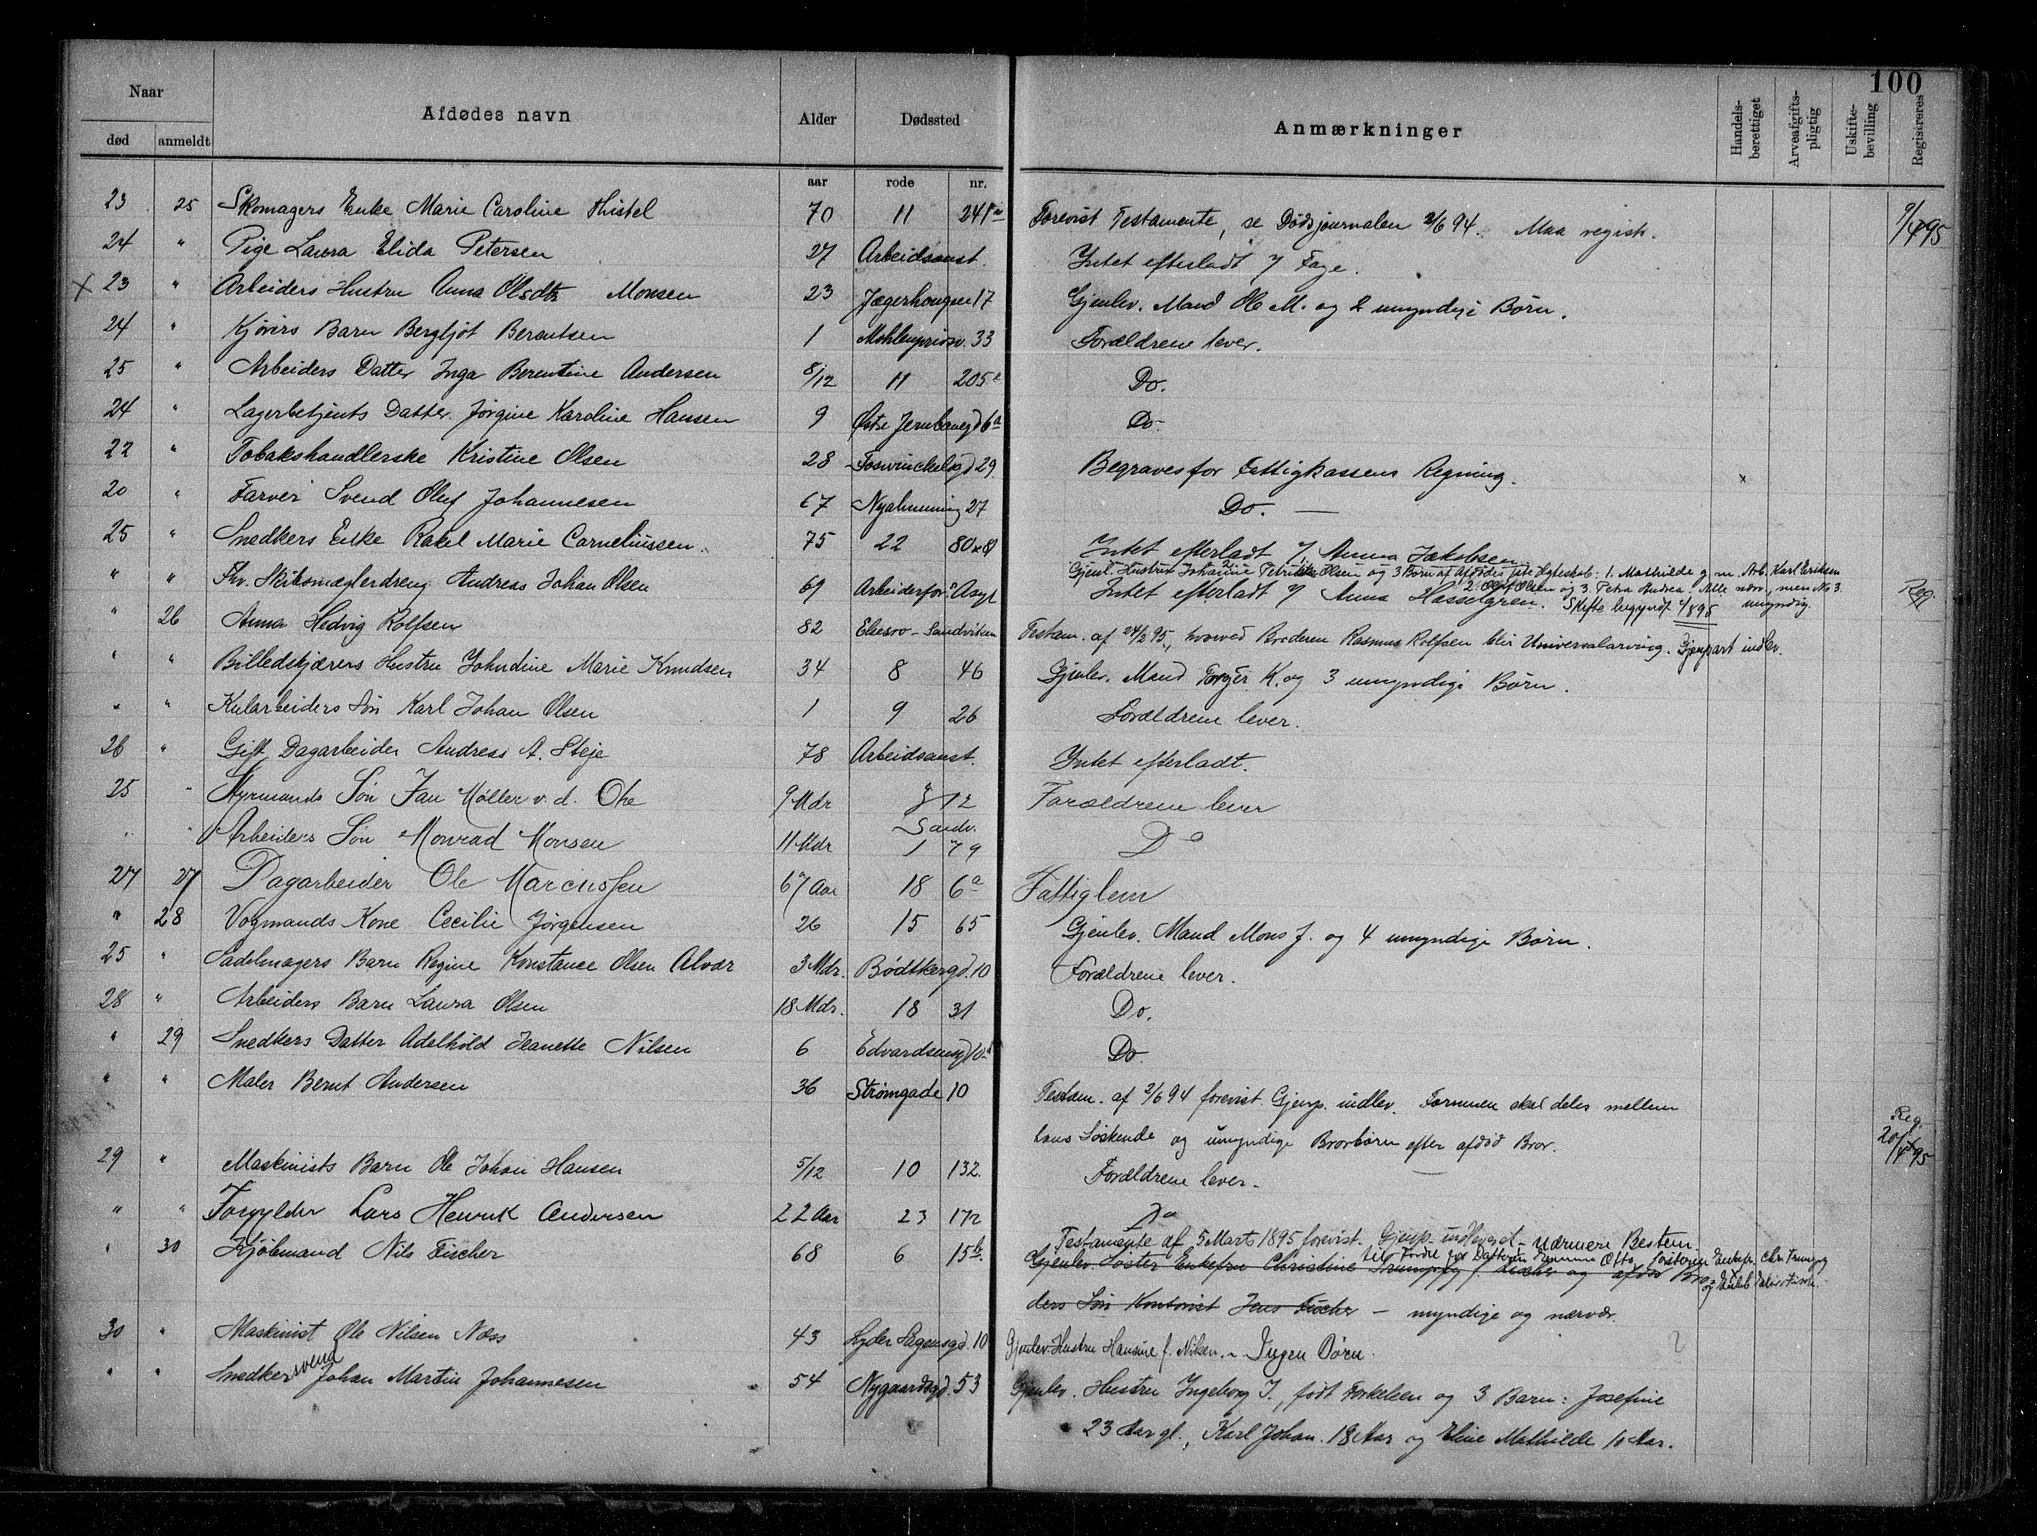 100
Naar
Afdødes navn
Alder
Dødssted
Anmærkninger
Handels-berettiget
Arveafgifts-pligtig
Uskifte-bevilling
Registreres
død anmeldt
aar rode nr.
23 25 Skomagers Enke Marie Caroline Thistel 70 11 241 Forevist Testamente, se Dødsjournalen 2/6 94. Maa regisk. 9/4 95
24 " Pige Laura Elida Petersen 27 Arbeidsanst. Intet efterladt
x 23 " Arbeiders Hustru Anna Olsdtr Monsen 23 Jægerhougen 17 Gjenlev. Mand Ole M. og 2 umyndige Børn.
24 " Kjørers Barn Bergljot Berentsen 1 Møhlenprisv. 33 Forældrene lever.
25 " Arbeiders Datter Inga Berentine Andersen 8/12 11 205 Do.
24 " Lagerbetjents Datter Jørgine Karoline Hansen 9 Østre Jernbanegd 6a Do.
22 " Tobakshandlerske Kristine Olsen 28 Foswinckelsgd 29. Begraves for Fattigkassens Regning. x
20 " Farver Svend Oluf Johannesen 67 Nyalmening 27 Do. —
25 " Snedkers Enke Rakel Marie Corneliussen. 75 22 80 Intet efterladt Anna Jakobsen
Gjenl. Hustru Johanne Petrikke Olsen og 3 Børn af Afdødes Ægteskab: 1. Mathilde g. m. Arb. Karl Eriksen
" " Fhv. Skibsmæglerdreng Andreas Johan Olsen 69 Arbeiderfor. Asyl Intet efterladt Anna Hasselgren. Reg.
2. Oluf Olsen og 3. Petra Andrea. Alle nærv., men No 3. umyndig.
" 26 Anna Hedvig Rolfsen 82 Elsesro - Sandviken Testam. af 24/2 95, hvorved Broderen Rasmus Rolfsen blir Universalarving. Gjenpart indlev.
" " Billedskjærers Hustru Johndine Marie Knudsen 34 8 46 Gjenlev. Mand Torger K. og 3 umyndige Børn.
" " Kularbeiders Søn Karl Johan Olsen 1 9 26 Forældrene lever.
26 " Gift Dagarbeider Andreas A. Steje 78 Arbeidsanst. Intet efterladt.
25 " Styrmands Søn Jan Møller v. d. Ohe 9 Mdr 3 12 Forældrene lever
" " Arbeiders Søn Monrad Monsen 11 Mdr Sandv. 1 79 Do
27 27 Dagarbeider Ole Marcussen 67 Aar 18 6a Fattiglem
" 28 Vognmands Kone Cecilie Jørgensen 26 15 65 Gjenlev. Mand Mons J. og 4 umyndige Børn.
25 " Sadelmagers Barn Regine Konstance Olsen Alvær 3 Mdr. Bødtkergd. 10 Forældrene lever.
28 " Arbeiders Barn Laura Olsen 18 Mdr. 18 31 Do.
" 29 Snedkers Datter Adelhold Jeanette Nilsen 6 Edvardsensgd 10 Do
" " Maler Bernt Andersen 36 Strømgade 10 Testam. af 2/6 94 forevist. Gjenp. indlev. Formuen skal deles mellem
hans Søskende og umyndige Brorbørn efter afdød Bror. Reg. 20/4 95
29 " Maskinists Barn Ole Johan Hansen 5/12 10 132. Forældrene lever.
" " Forgylder Lars Henrik Andersen 22 Aar 23 172 Do
Testamente af 5 Marts 1895 forevist. Gjenp. indlevet - nærmere Bestem.
" 30 Kjøbmand Nils Fischer 68 6 15b. Gjenlev. Søster Enkefru Christine Trumpy f. Fischer og afdød Bro-
til Fordel for Datteren Otto, Søsteren Enkefr. Chr. Trumpy
ders Søn Kontorist Jens Fischer - myndige og nærvær.
30 " Maskinist Ole Nilsen Næss 43 Lyder Sagensgd. 10 Gjenlev. Hustru Hansine f. Nilsen. - Ingen Børn.
" " Snedkersvend Johan Martin Johannesen 54 Nygaardsgd. 53 Gjenlev. Hustru Ingeborg J., født Torkelsen og 3 Barn: Josefine
23 Aar gl., Karl Johan 18 Aar og Eline Mathilde 10 Aar.